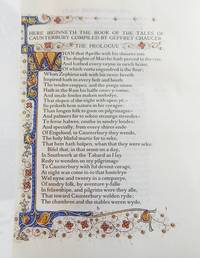 HERE BIGINNETH THE BOOK OF THE TALES OF
CAUNTERBURY COMPILED BY GEFFREY CHAUCER
THE PROLOGUE
WHAN that Aprille with his shoures sote
The droghte of Marche hath perced to the rote,
And bathed every veyne in swich licour,
Of which vertu engendred is the flour;
Whan Zephirus eek with his swete breeth
Inspired hath in every holt and heeth
The tendre croppes, and the yonge sonne
Hath in the Ram his halfe cours y-ronne,
And smale fowles maken melodye,
That slepen al the night with open yë,
So priketh hem nature in hir corages:
Than longen folk to goon on pilgrimages,
And palmers for to seken straunge strondes,
To ferne halwes, couthe in sondry londes;
And specially, from every shires ende
Of Engelond, to Caunterbury they wende,
The holy blisful martir for to seke,
That hem hath holpen, whan that they were seke.
Bifel that, in that seson on a day,
In Southwerk at the Tabard as I lay,
Redy to wenden on my pilgrimage
To Caunterbury with ful devout corage,
At night was come in-to that hostelrye
Wel nyne and twenty in a companye,
Of sondry folk, by aventure y-falle
In felawshipe, and pilgrims were they alle,
That toward Caunterbury wolden ryde;
The chambres and the stables weren wyde,